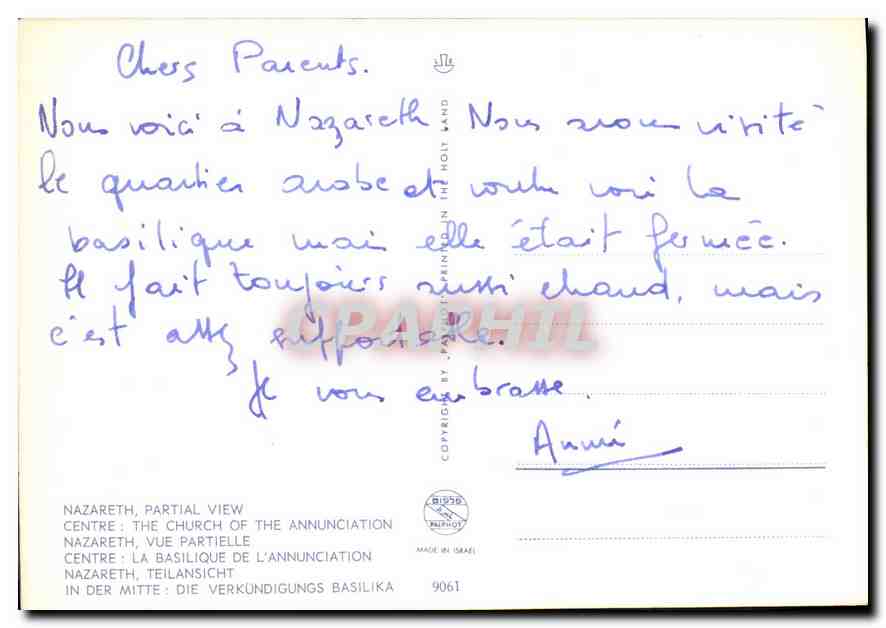 Chers Parents.
Nous voici à Nazareth Nous avons visité
le quartier arabe et voulu voir la
basilique mais elle était fermée.
Il fait toujours aussi chaud, mais
c'est assez supportable.
Je vous embrasse.
COPYRIGHT BY "PALPHOT" PRINTED IN THE HOLY LAND
CPAPHIL
NAZARETH, PARTIAL VIEW
CENTRE : THE CHURCH OF THE ANNUNCIATION
NAZARETH, VUE PARTIELLE
CENTRE : LA BASILIQUE DE L'ANNUNCIATION
NAZARETH, TEILANSICHT
IN DER MITTE : DIE VERKÜNDIGUNGS BASILIKA
PALPHOT
MADE IN ISRAEL
9061